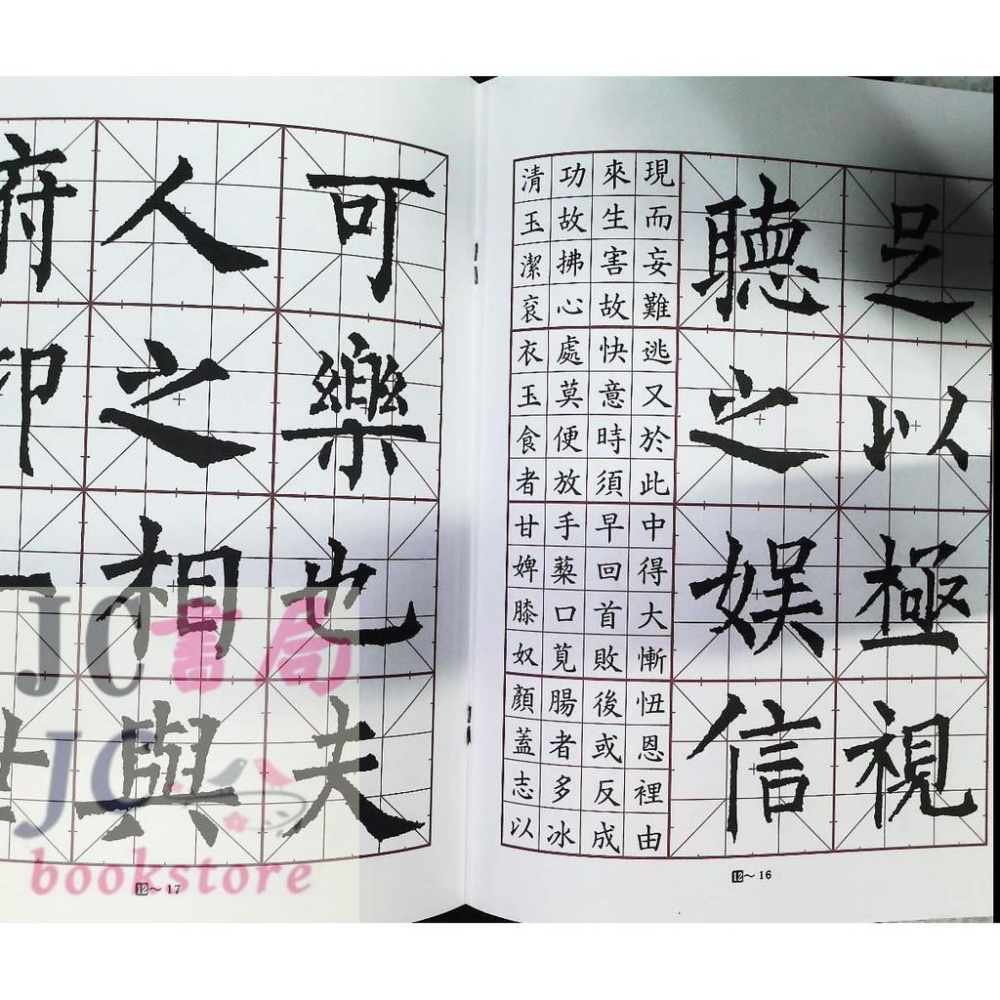 足以極視
聽之娛信
現而妄難逃又於此中得大慚忸恩裡由
來生害故快意時須早回首敗後或反成
功故拂心處莫便放手藜口莧腸者多冰
清玉潔袞衣玉食者甘婢膝奴顏蓋志以
12～16
可樂也夫
人之相與
12～17
JC書局
JC
bookstore